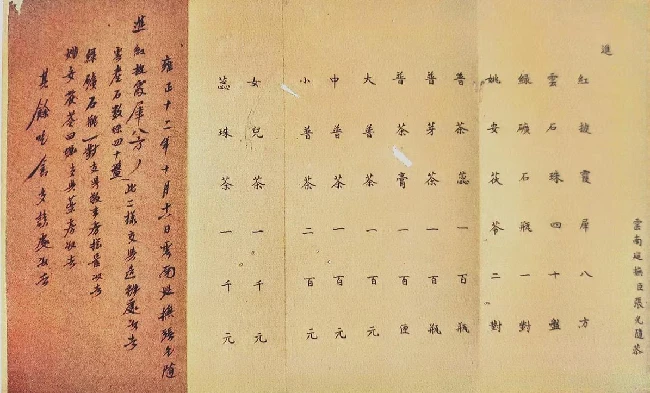 雲南巡撫臣張允隨恭
進
紅披霞屏八方
雲石珠四十盤
綠礦石瓶一對
姚安茯苓二對
普茶蕊一百瓶
普芽茶一百瓶
普茶膏一百匣
大普茶一百元
中普茶一百元
小普茶二百元
女兒茶一千元
蕊珠茶一千元
雍正十二年十月十六日雲南巡撫張允隨
進紅披霞屏八方 此二樣交與造辦處
雲產石數珠四十盤
綠礦石瓶一對交與
姚安茯苓四個交與
其餘